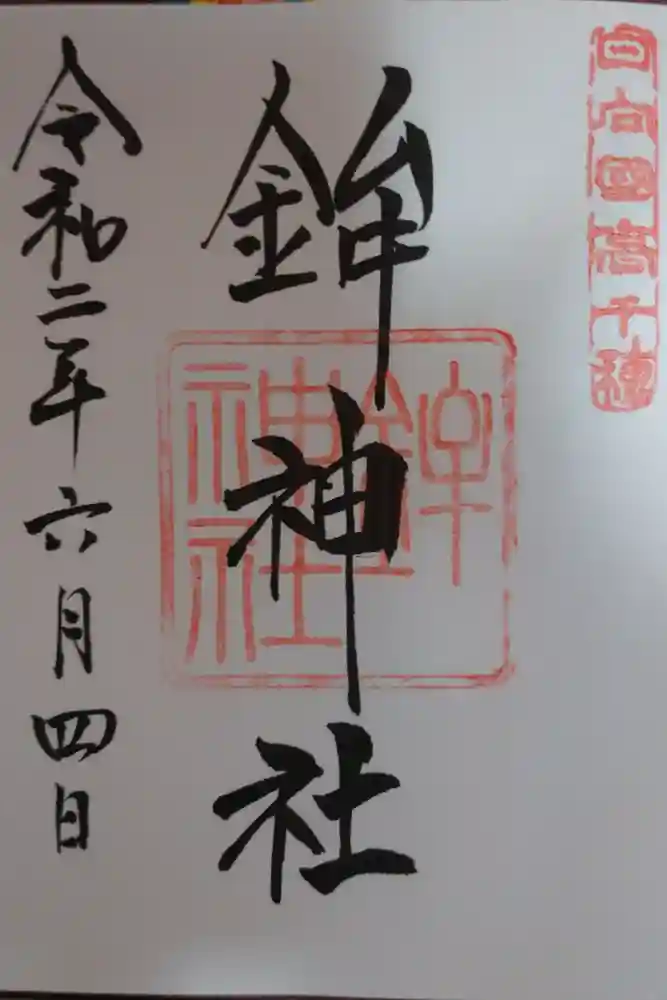 日向國高千穂
鉾神社
鉾神社
令和二年六月四日